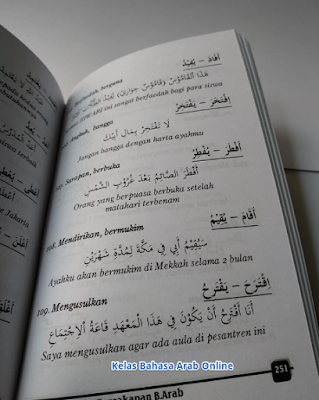 أَفَادَ – يُفِيْدُ
berguna
هَذَا الْقَامُوْسُ (قَامُوْسُ جِوَارِيْ) يُفِيْدُ الطُّلَّابَ
ini sangat berfaedah bagi para siswa
اِفْتَخَرَ – يَفْتَخِرُ
bangga
لَا تَفْتَخِرْ بِمَالِ أَبِيْكَ
Jangan bangga dengan harta ayahmu
أَفْطَرَ – يُفْطِرُ
Sarapan, berbuka
أَفْطَرَ الصَّائِمُ بَعْدَ غُرُوْبِ الشَّمْسِ
Orang yang berpuasa berbuka setelah
matahari terbenam
أَقَامَ – يُقِيْمُ
108. Mendirikan, bermukim
سَيُقِيْمُ أَبِي فِي مَكَّةَ لِمُدَّةِ شَهْرَيْنِ
Ayahku akan bermukim di Mekkah selama 2 bulan
اِقْتَرَحَ – يَقْتَرِحُ
109. Mengusulkan
أَنَا أَقْتَرِحُ أَنْ يَكُوْنَ فِي هَذَا الْمَعْهَدِ قَاعَةُ الْاِجْتِمَاعِ
Saya mengusulkan agar ada aula di pesantren ini
Kelas Bahasa Arab Online
251
B.Arab